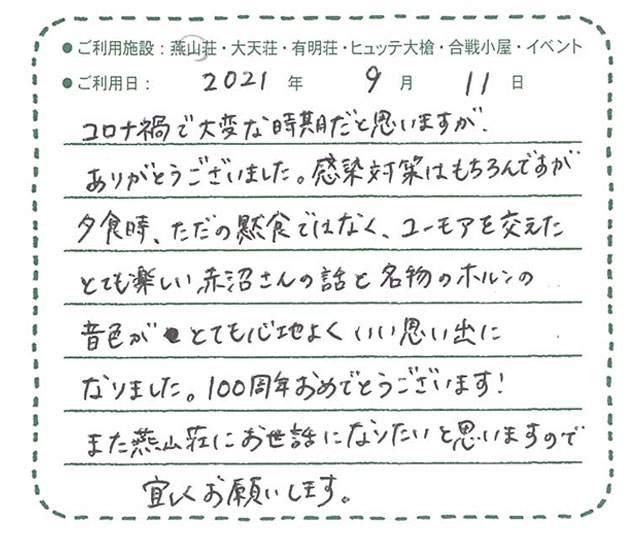 ●ご利用施設：燕山荘・大天荘・有明荘・ヒュッテ大槍・合戦小屋・イベント
●ご利用日： 2021 年 9 月 11 日
コロナ禍で大変な時期だと思いますが、
ありがとうございました。感染対策はもちろんですが
夕食時、ただの黙食ではなく、ユーモアを交えた
とても楽しい赤沼さんの話と名物のホルンの
音色がとても心地よくいい思い出に
なりました。100周年おめでとうございます!
また燕山荘にお世話になりたいと思いますので
宜しくお願いします。